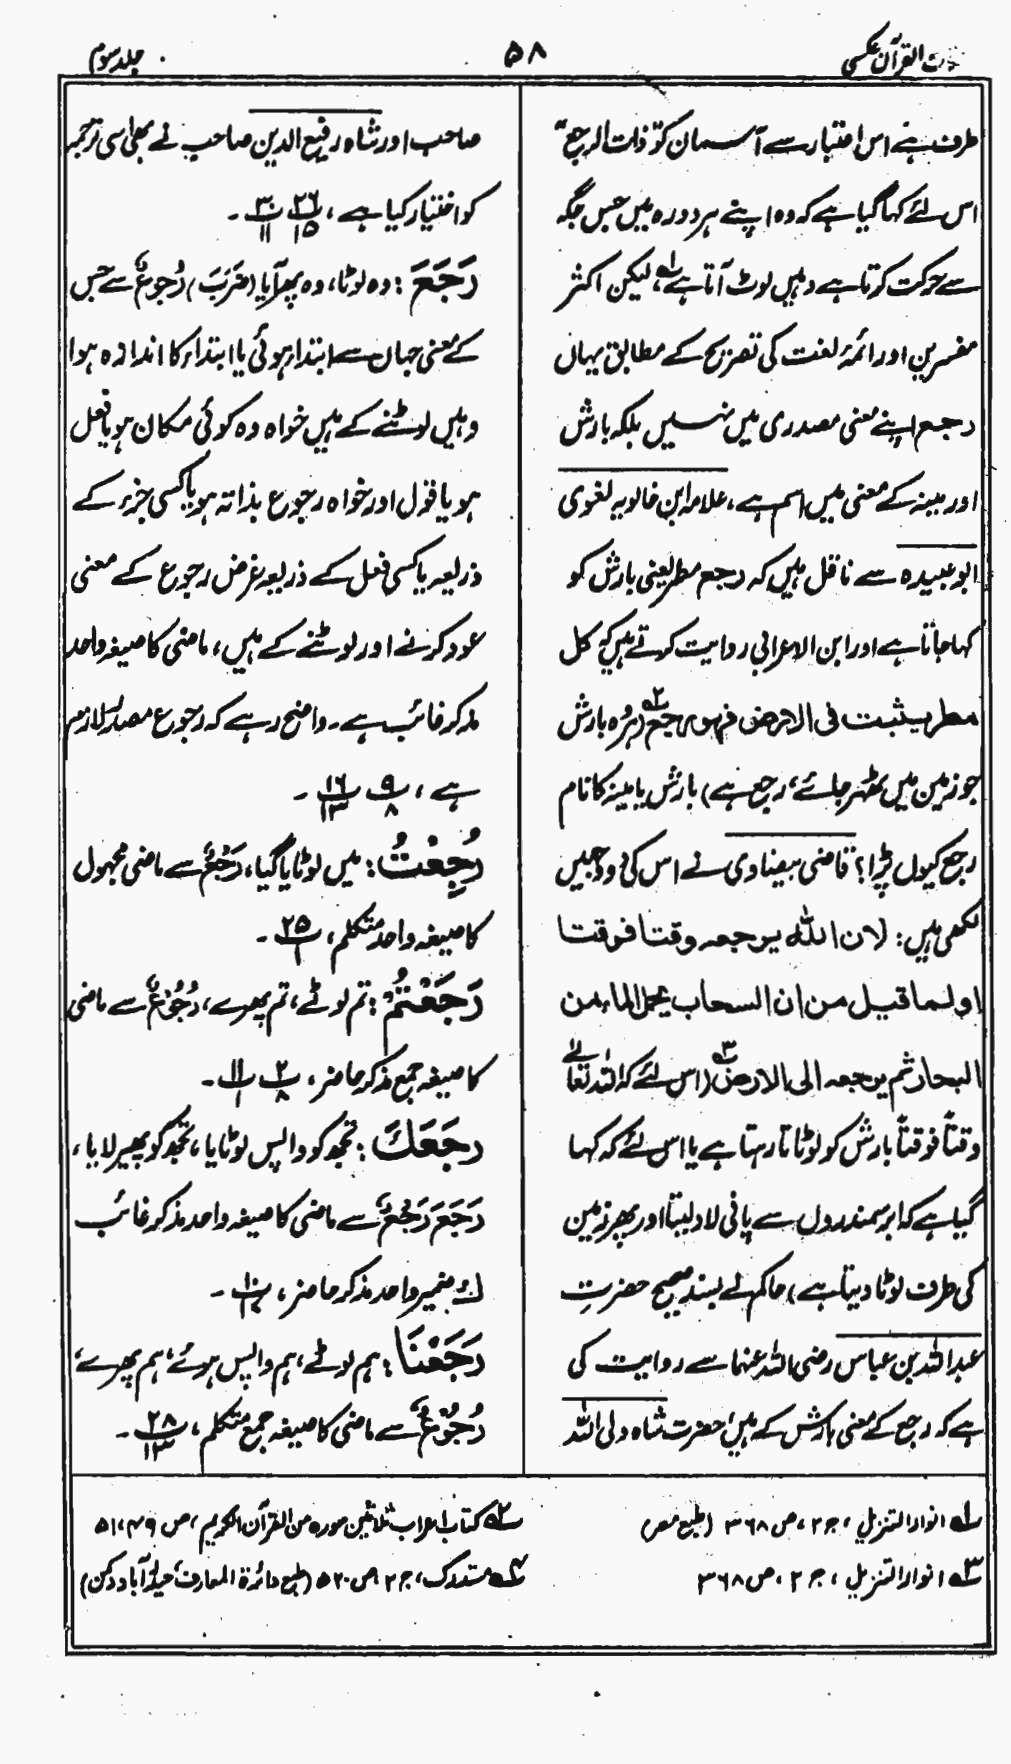 لغات القرآن عکسی
۵۸
جلد سوم
طرف ہے اس اعتبار سے آسمان کو ذات الرجع"
اس لئے کہا گیا ہے کہ وہ اپنے ہر دورہ میں جس جگہ
سے حرکت کرتا ہے وہیں لوٹ آتا ہے، لیکن اکثر
مفسرین اور ائمۂ لغت کی تصریح کے مطابق یہاں
رجع اپنے معنی مصدری میں نہیں بلکہ بارش
اور مینہ کے معنی میں اسم ہے، علامہ ابن خالویہ لغوی
ابو عبیدہ سے ناقل ہیں کہ رجع مطر یعنی بارش کو
کہا جاتا ہے اور ابن الاعرابی روایت کرتے ہیں کہ کل
مطر یثبت فی الارض فہو رجع ۲ (ہر وہ بارش
جو زمین میں ٹھہر جائے، رجع ہے) بارش یا مینہ کا نام
رجع کیوں پڑا؟ قاضی بیضاوی نے اس کی وجہیں
لکھی ہیں: لان اللہ یرجعہ وقتا فوقتا
او لما قیل من ان السحاب یحمل الماء من
البحار ثم یرجعہ الی الارض ۳ (اس لئے کہ اللہ تعالیٰ
وقتاً فوقتاً بارش کو لوٹاتا رہتا ہے یا اس لئے کہ کہا
گیا ہے کہ ابر سمندروں سے پانی لاد لیتا اور پھر زمین
کی طرف لوٹا دیتا ہے) حاکم نے بسند صحیح حضرت
عبد اللہ بن عباس رضی اللہ عنہما سے روایت کی
ہے کہ رجع کے معنی بارش کے ہیں، حضرت شاہ ولی اللہ
صاحب اور شاہ رفیع الدین صاحب نے بھی اسی ترجمہ
کو اختیار کیا ہے، ۲۶/۱۵ ۳۰/۱۱ ۔
رَجَعَ: وہ لوٹا، وہ پھر آیا (ضَرَبَ) رُجُوعٌ سے جس
کے معنی جہاں سے ابتداء ہوئی یا ابتداء کا اندازہ ہوا
وہیں لوٹنے کے ہیں خواہ وہ کوئی مکان ہو یا فعل
ہو یا قول اور خواہ رجوع بذاتہ ہو یا کسی جزء کے
ذریعہ یا کسی فعل کے ذریعہ غرض رجوع کے معنی
عود کرنے اور لوٹنے کے ہیں، ماضی کا صیغہ واحد
مذکر غائب ہے۔ واضح رہے کہ رجوع مصدر لازم
ہے، ۹/۸ ۱۶/۱۳ ۔
رُجِعْتُ: میں لوٹایا گیا، رَجْعٌ سے ماضی مجہول
کا صیغہ واحد متکلم، ۲۵/۱ ۔
رَجَعْتُمْ: تم لوٹے، تم پھرے، رُجُوْعٌ سے ماضی
کا صیغہ جمع مذکر حاضر، ۲/۸ ۱۱/۱ ۔
رَجَعَكَ: تجھ کو واپس لوٹایا، تجھ کو پھیر لایا،
رَجَعَ رَجْعٌ سے ماضی کا صیغہ واحد مذکر غائب
كَ ضمیر واحد مذکر حاضر، ۱۰/۱۷ ۔
رَجَعْنَا: ہم لوٹے، ہم واپس ہوئے، ہم پھرے،
رُجُوْعٌ سے ماضی کا صیغہ جمع متکلم، ۲۸/۱۳ ۔
۱ انوار التنزیل، ج ۲، ص ۳۶۸ (طبع مصر)
۲ کتاب اعراب ثلاثین سورہ من القرآن الکریم، ص ۴۹، ۵۱
۳ انوار التنزیل، ج ۲، ص ۳۶۸
۴ مستدرک، ج ۲ ص ۵۲۰ (طبع دائرۃ المعارف، حیدر آباد دکن)